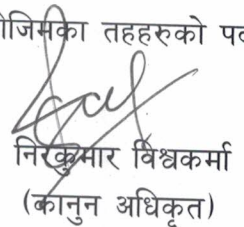 जिमका तहहरुको पद
निरकुमार विश्वकर्मा
(कानुन अधिकृत)